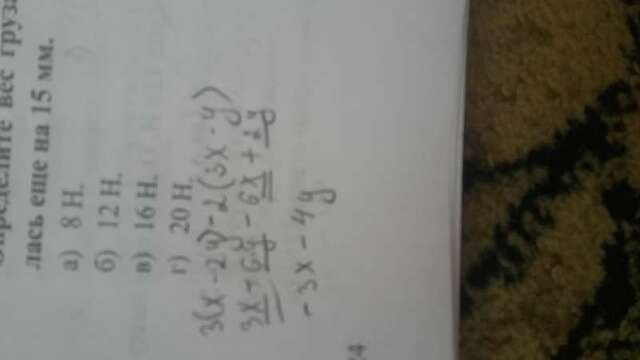 Определите вес груза
лась еще на 15 мм.
а) 8 Н.
б) 12 Н.
в) 16 Н.
г) 20 Н.
3(x - 2y) - 2(3x - y)
3x - 6y - 6x + 2y
-3x - 4y
24